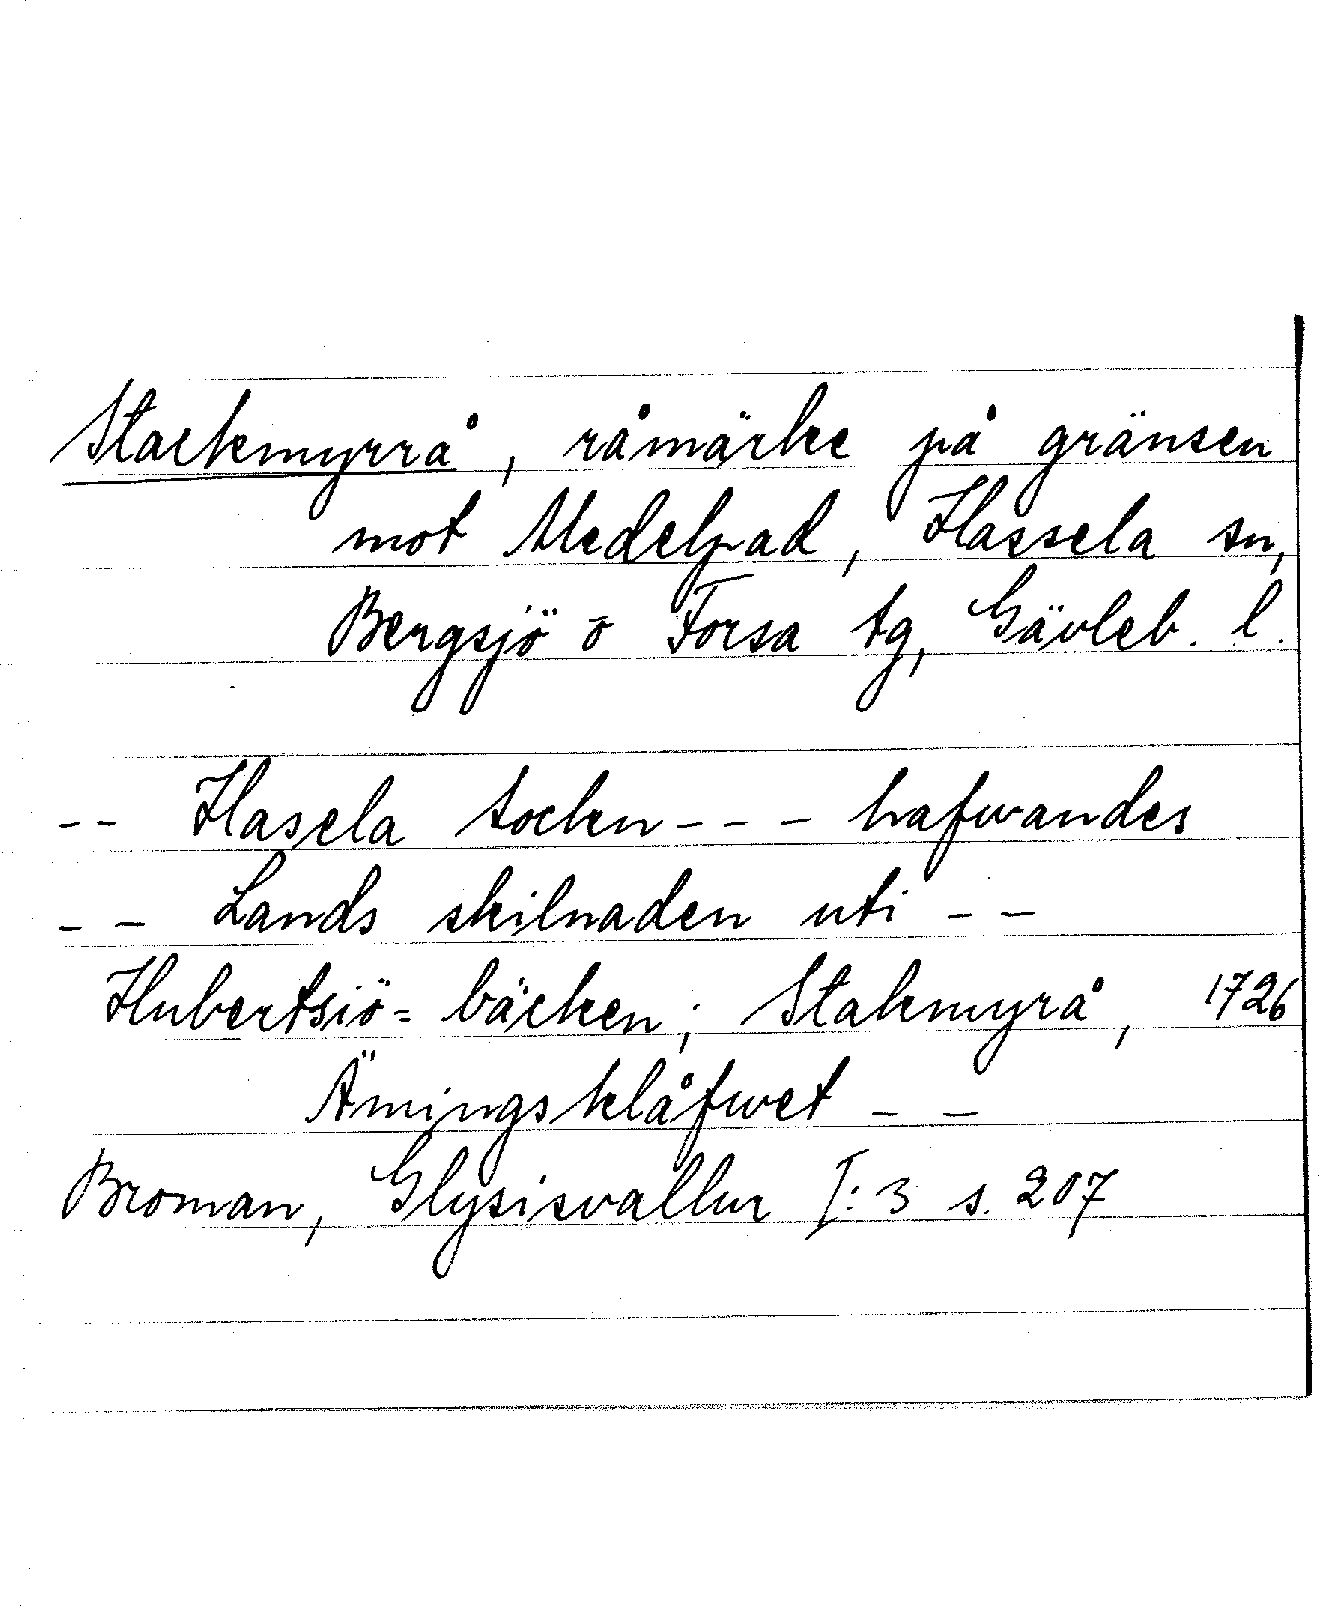 Stackmyrrå, råmärke på gränsen
mot Medelpad, Hassela sn,
Bergsjö o Forsa tg, Gävleb. l.
-- Hasela socken --- hafwandes
-- Lands skilnaden uti --
Hubertsiö= bäcken; Stakmyrå, 1726
Ämingsklåfwet --
Broman, Glysisvallur I:3 s. 207